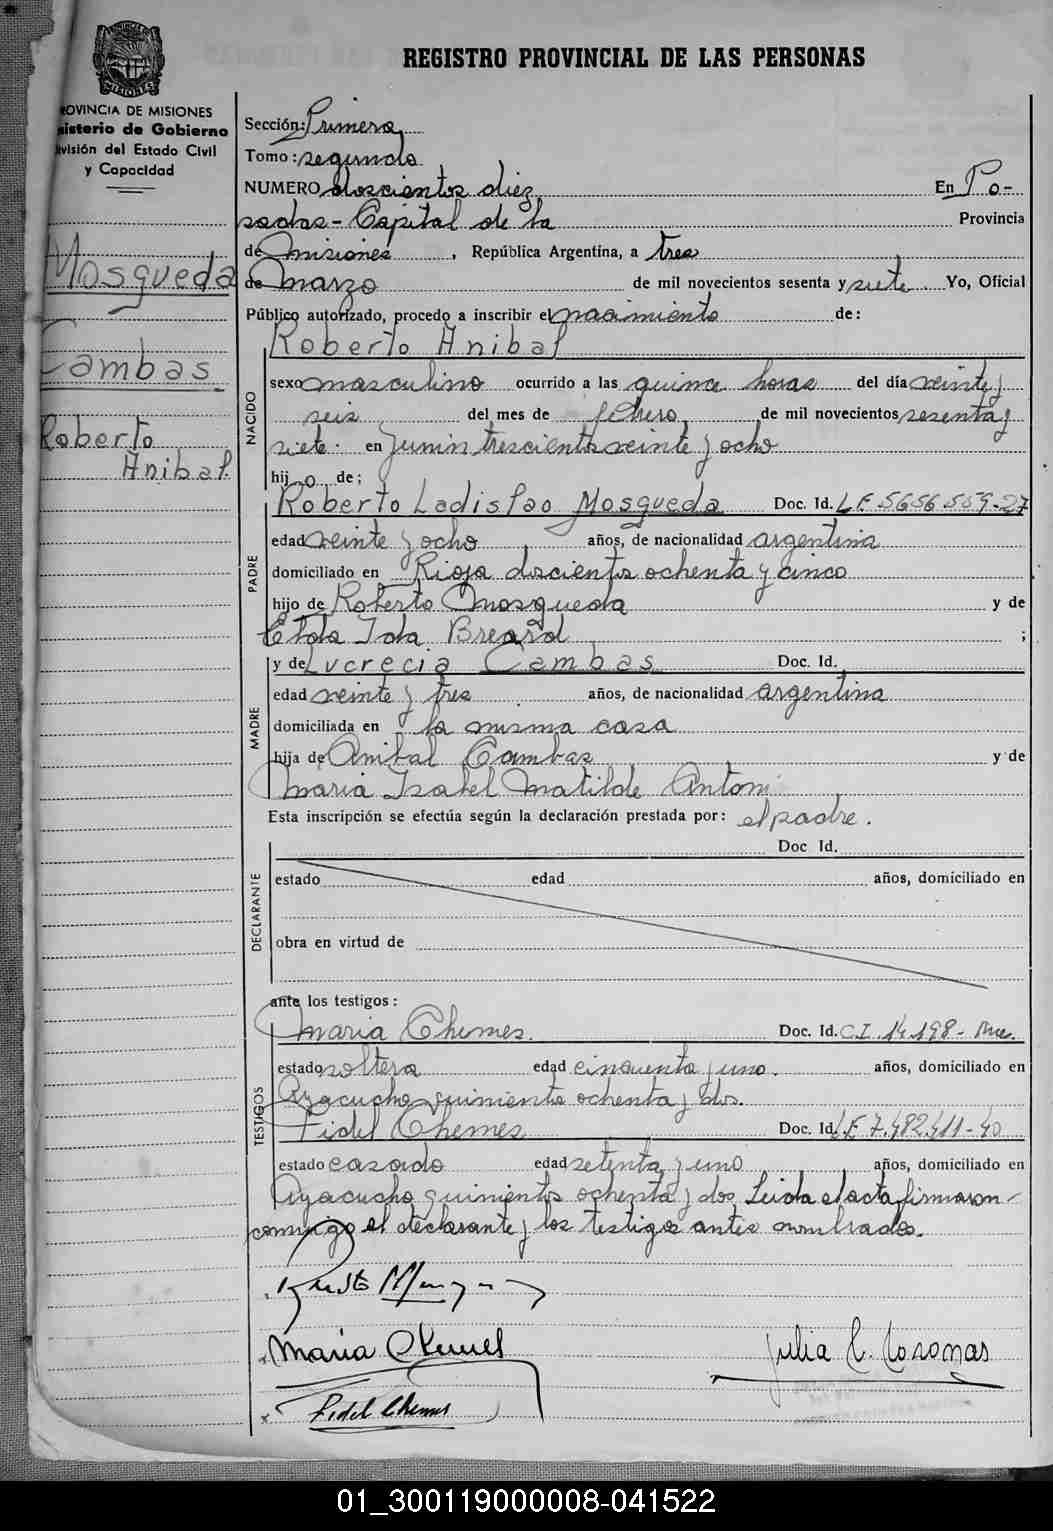 REGISTRO PROVINCIAL DE LAS PERSONAS
PROVINCIA DE MISIONES
Ministerio de Gobierno
División del Estado Civil
y Capacidad
Mosqueda
Cambas
Roberto
Anibal
Sección: Primera
Tomo: segundo
NUMERO doscientos diez En Po-
sadas - Capital de la Provincia
de Misiones, República Argentina, a tres
de Marzo de mil novecientos sesenta y siete. Yo, Oficial
Público autorizado, procedo a inscribir el nacimiento de:
Roberto Anibal
NACIDO
sexo masculino ocurrido a las quince horas del día veinte y
seis del mes de febrero de mil novecientos sesenta y
siete en Junin trescientos veinte y ocho
hijo de;
Roberto Ladislao Mosqueda Doc. Id. L.E. 5656559-27
PADRE
edad veinte y ocho años, de nacionalidad argentina
domiciliado en Rioja doscientos ochenta y cinco
hijo de Roberto Mosqueda y de
Elda Ida Breard ;
y de Lucrecia Cambas Doc. Id.
MADRE
edad veinte y tres años, de nacionalidad argentina
domiciliada en la misma casa
hija de Anibal Cambas y de
Maria Isabel Matilde Antoni
Esta inscripción se efectúa según la declaración prestada por: el padre.
DECLARANTE
Doc Id.
estado edad años, domiciliado en
obra en virtud de
ante los testigos:
TESTIGOS
Maria Chemes. Doc. Id. C.I. 14.198 - Mnes.
estado soltera edad cincuenta y uno. años, domiciliado en
Ayacucho quinientos ochenta y dos.
Fidel Chemes Doc. Id. L.E 7.482.411-40
estado casado edad setenta y uno años, domiciliado en
Ayacucho quinientos ochenta y dos Leida el acta firmaron
conmigo el declarante y los testigos antes nombrados.
Maria Chemes
Julia C. Coronas
Fidel Chemes
01_300119000008-041522